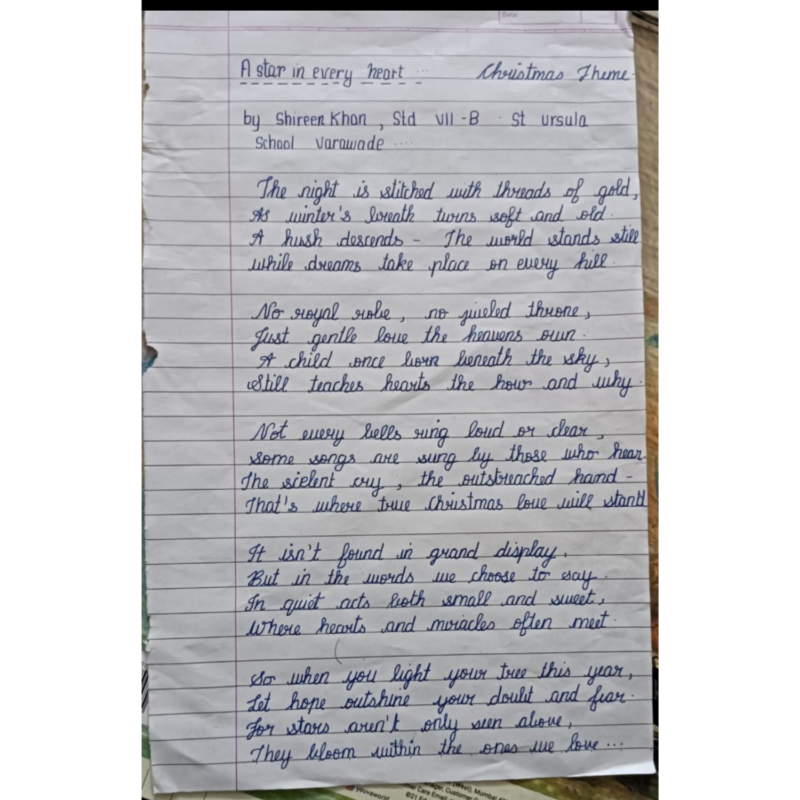 Date:
A star in every heart ... Christmas Theme.
by Shireen Khan , Std VII - B . St ursula
School Varawade ....
The night is stitched with threads of gold,
As winter's breath turns soft and old.
A hush descends - The world stands still
while dreams take place on every hill.
No royal robe, no jweled throne,
Just gentle love the heavens own.
A child once born beneath the sky,
Still teaches hearts the how and why.
Not every bells ring loud or clear,
Some songs are sung by those who hear.
The scielent cry, the outstreached hand -
That's where true Christmas love will stand
It isn't found in grand display.
But in the words we choose to say.
In quiet acts both small and sweet,
Where hearts and miracles often meet.
So when you light your tree this year,
Let hope outshine your doubt and fear.
For stars aren't only seen above,
They bloom within the ones we love ...
(West), Mumbai
Customer
Care Email
youvaworld